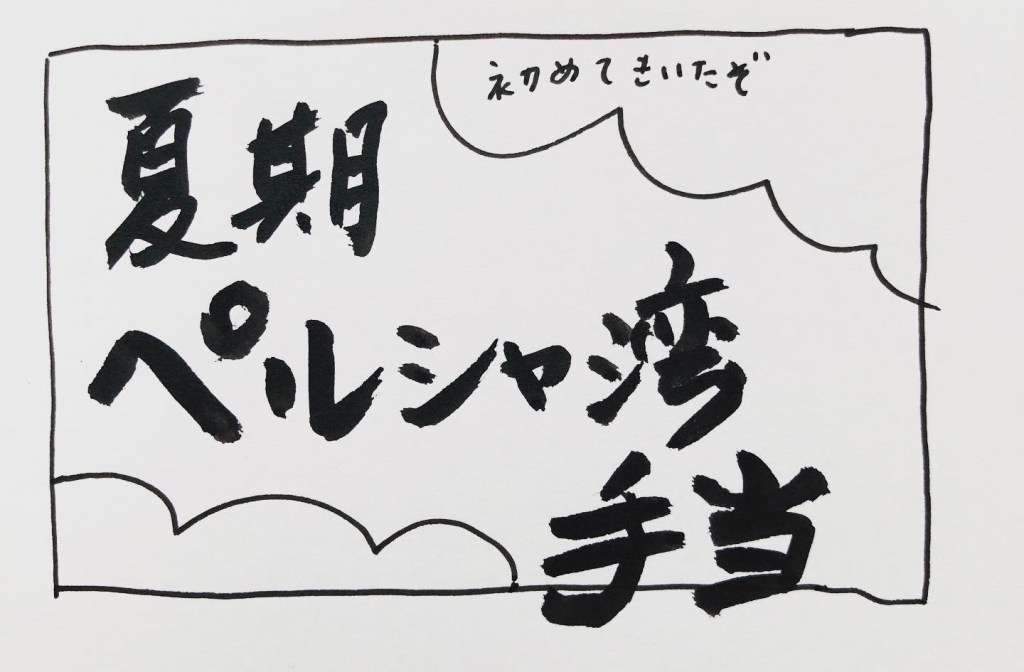 初めてきいたぞ
夏期
ペルシャ湾
手当